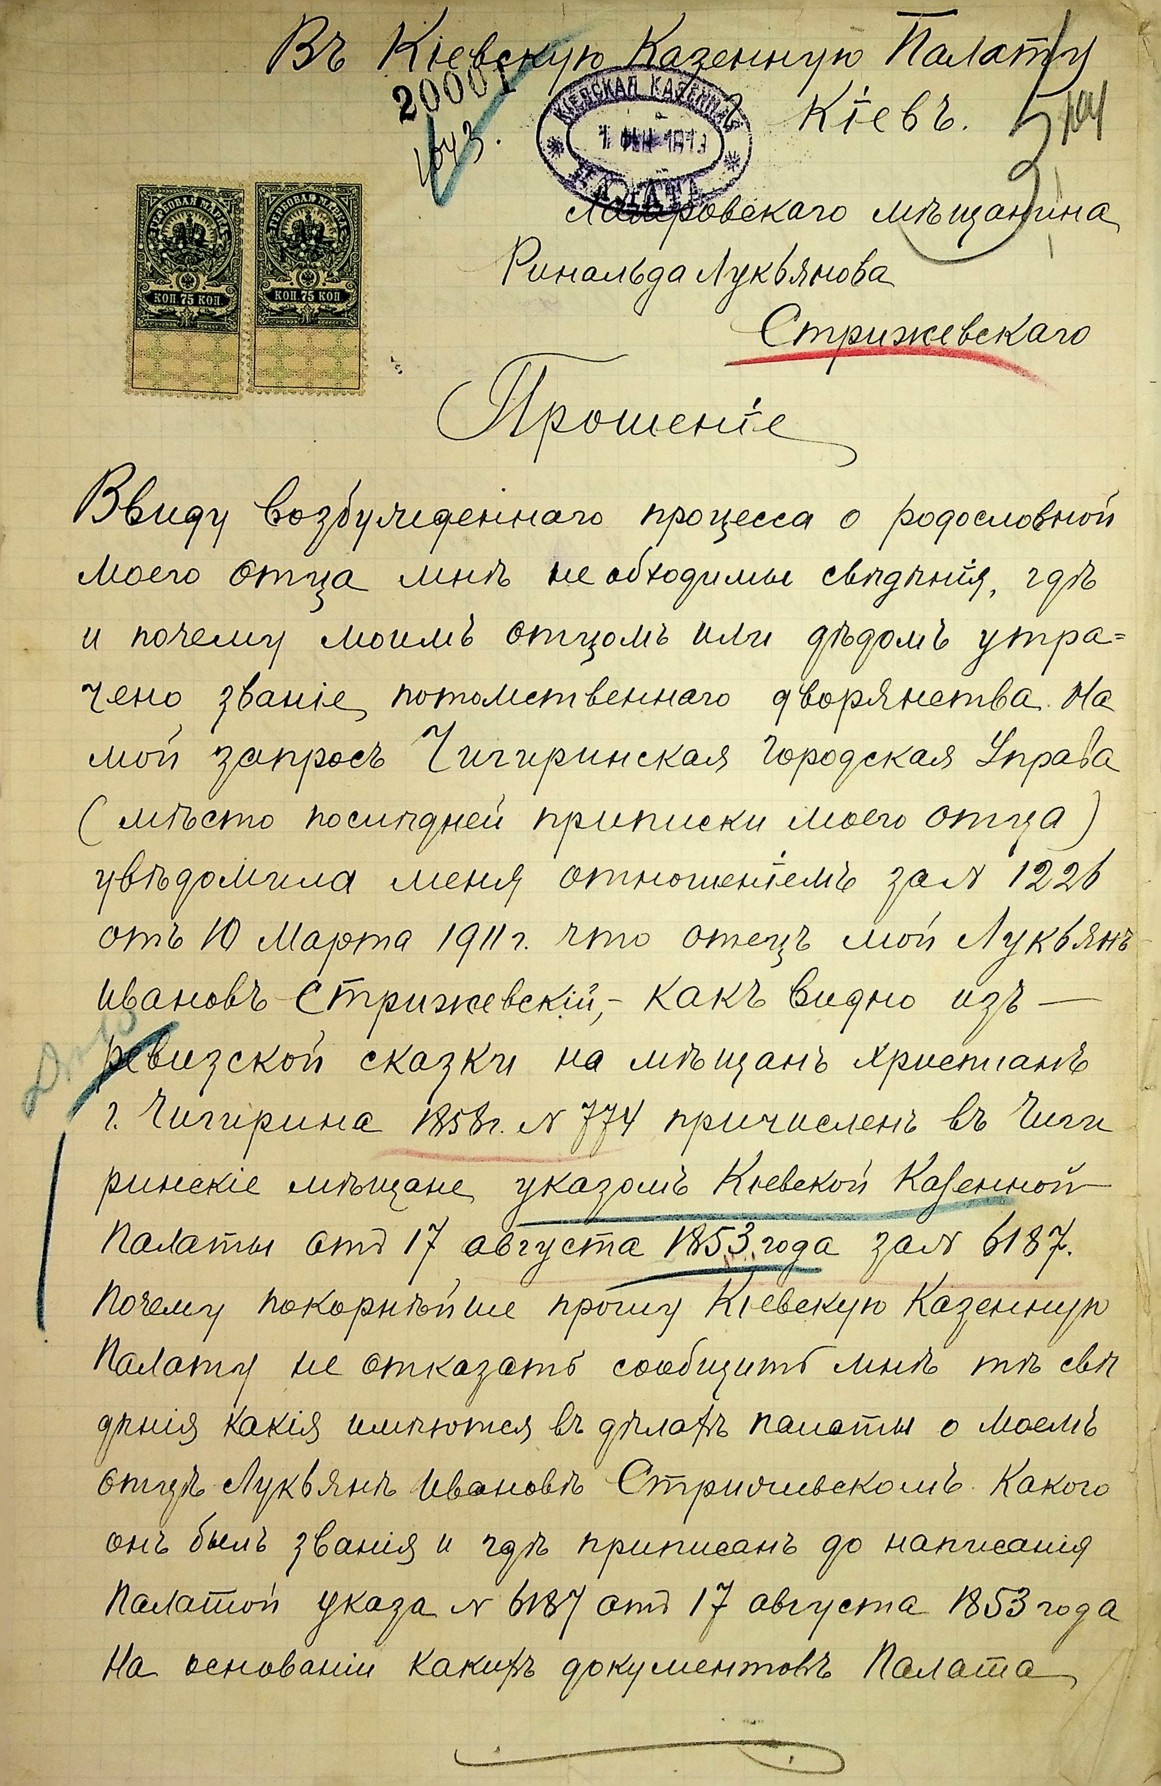 Въ Кіевскую Казенную Палату
20001
КІЕВСКАЯ КАЗЕННАЯ
ПАЛАТА
Кіевъ.
мѣщанина
Ринальда Лукьянова
Стрижевскаго
ГЕРБОВАЯ МАРКА
ГЕРБОВАЯ МАРКА
КОП. 75 КОП
КОП. 75 КОП
Прошеніе
Ввиду возбужденнаго процесса о родословной
моего отца мнѣ необходимы свѣдѣнія, гдѣ
и почему моимъ отцомъ или дѣдомъ утра=
чено званіе потомственнаго дворянства. На
мой запросъ Чигиринская Городская Управа
(мѣсто послѣдней приписки моего отца)
увѣдомила меня отношеніемъ за № 1226
отъ 10 Марта 1911 г. что отецъ мой Лукьянъ
Ивановъ Стрижевскій, – какъ видно изъ —
ревизской сказки на мѣщанъ христіанъ
г. Чигирина 1858 г. № 774 причисленъ въ Чиги
ринскіе мѣщане указомъ Кіевской Казенной
Палаты отъ 17 августа 1853 года за № 6187.
Почему покорнѣйше прошу Кіевскую Казенную
Палату не отказать сообщить мнѣ тѣ свѣ
дѣнія какія имѣются въ дѣлахъ палаты о моемъ
отцѣ Лукьянѣ Ивановѣ Стрижевскомъ. Какого
онъ былъ званія и гдѣ приписанъ до написанія
Палатой указа № 6187 отъ 17 августа 1853 года
На основаніи какихъ документовъ Палата